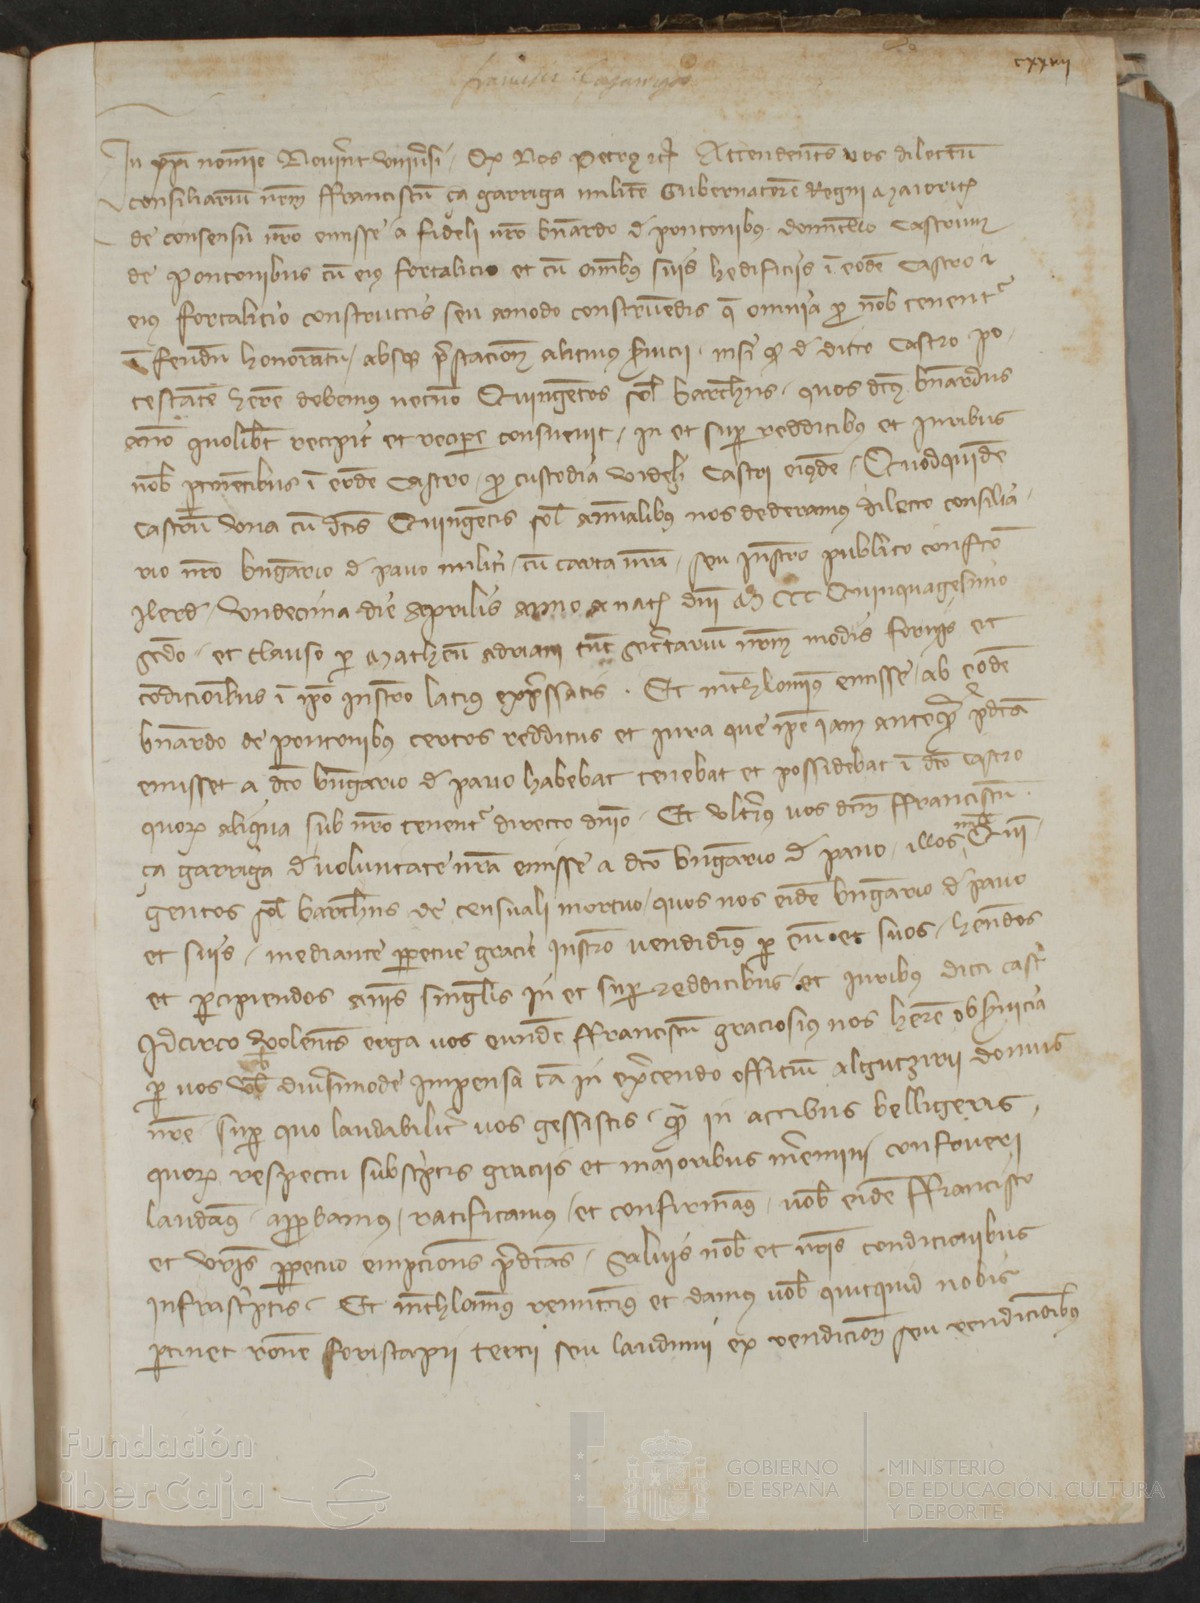 cxxviij
In xpi nomine Nouerint vniuersi Qd Nos Petrus etc Attendentes vos dilectum
consiliarium nrm ffranciscum ça garriga militem Gubernatorem Regni Maioric
de consensu nro emisse a fideli nro bnardo de pontonibus domicello Castrum
de Pontonibus cum eius fortalicio et cum omnibus suis hedificiis in eodem Castro et
eius fortalicio constructis seu amodo construendis que omnia pro nobis tenentur
in feudum honoratum absque prestacione alicuius seruicii nisi quod de dicto Castro po-
testatem habere debemus necnon Quingentos sol barchns quos dcus bnardus
anno quolibet recipit et recipere consueuit in et super redditibus et iuribus
nob pertinentibus in eodem Castro pro custodia videlicet Castri eiusdem Quodquidem
castrum vna cum dcis Quingentis sol annualibus nos dederamus dilecto consilia-
rio nro bngario de pauo militi cum carta nra seu Instro publico confecto
Ilerde vndecima die Aprilis anno a nat dni M CCC Quinquagesimo
scdo et clauso per Matheum Adriani tunc secretarium nrm modis formis et
condicionibus in ipso Instro lacius expressatis Et nichilominus emisse ab eodem
bnardo de pontonibus certos redditus et iura que ipse iam antequam predicta
emisset a dco bngario de pauo habebat tenebat et possidebat in dco castro
quorum aliqua sub nro tenentur directo dnio Et vlterius vos dcum ffranciscum
ça garriga de voluntate nra emisse a dco bngario de pauo illos mille Quin-
gentos sol barchns de censuali mortuo quos nos eidem bngario de pauo
et suis mediante perpetue gracie Instro vendidimus per eum et suos habendos
et percipiendos annis singulis in et super redditibus et iuribus dicti castri
Idcirco volentes erga vos eundem ffranciscum graciosius nos habere ob seruicia
per vos nob diuersimode impensa tam in exercendo officium algutzirii domus
nre super quo laudabiliter vos gessistis quam in actibus belligeris
quorum respectu subscriptis graciis et maioribus meremini confoueri
laudamus approbamus ratificamus et confirmamus vob eidem ffrancisco
et vris perpetuo empciones predictas Saluis nob et nris condicionibus
infrascriptis Et nichilominus remittimus et damus vob quitquid nobis
pertinet racione foriscapii tercii seu laudimii ex vendicione seu vendicionibus
Fundación
iberCaja
GOBIERNO
DE ESPAÑA
MINISTERIO
DE EDUCACIÓN, CULTURA
Y DEPORTE